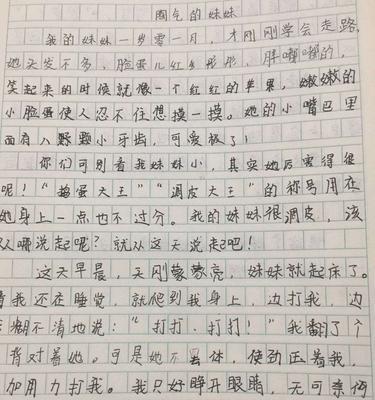 淘气的妹妹
我的妹妹一岁零一月，才刚刚学会走路，
她头发不多，脸蛋儿红红彤彤，胖嘟嘟的，
笑起来的时候就像一个红红的苹果，嫩嫩的
小脸蛋使人忍不住想摸一摸。她的小嘴巴里
面有八颗小牙齿，可爱极了！
你们可别看我妹妹小，其实她厉害得很
呢！“捣蛋大王”“调皮大王”的称号用在
她身上一点也不过分。我的妹妹很调皮，该
从哪说起呢？就从这天说起吧！
这天早晨，天刚蒙蒙亮，妹妹就起床了。
看我还在睡觉，就爬到我身上，边打我，边
糊不清地说：“打打，打打！”我翻了个
背对着她。可是她不，使劲压着我，
加用力打我。我只好睁开眼睛，无可奈何